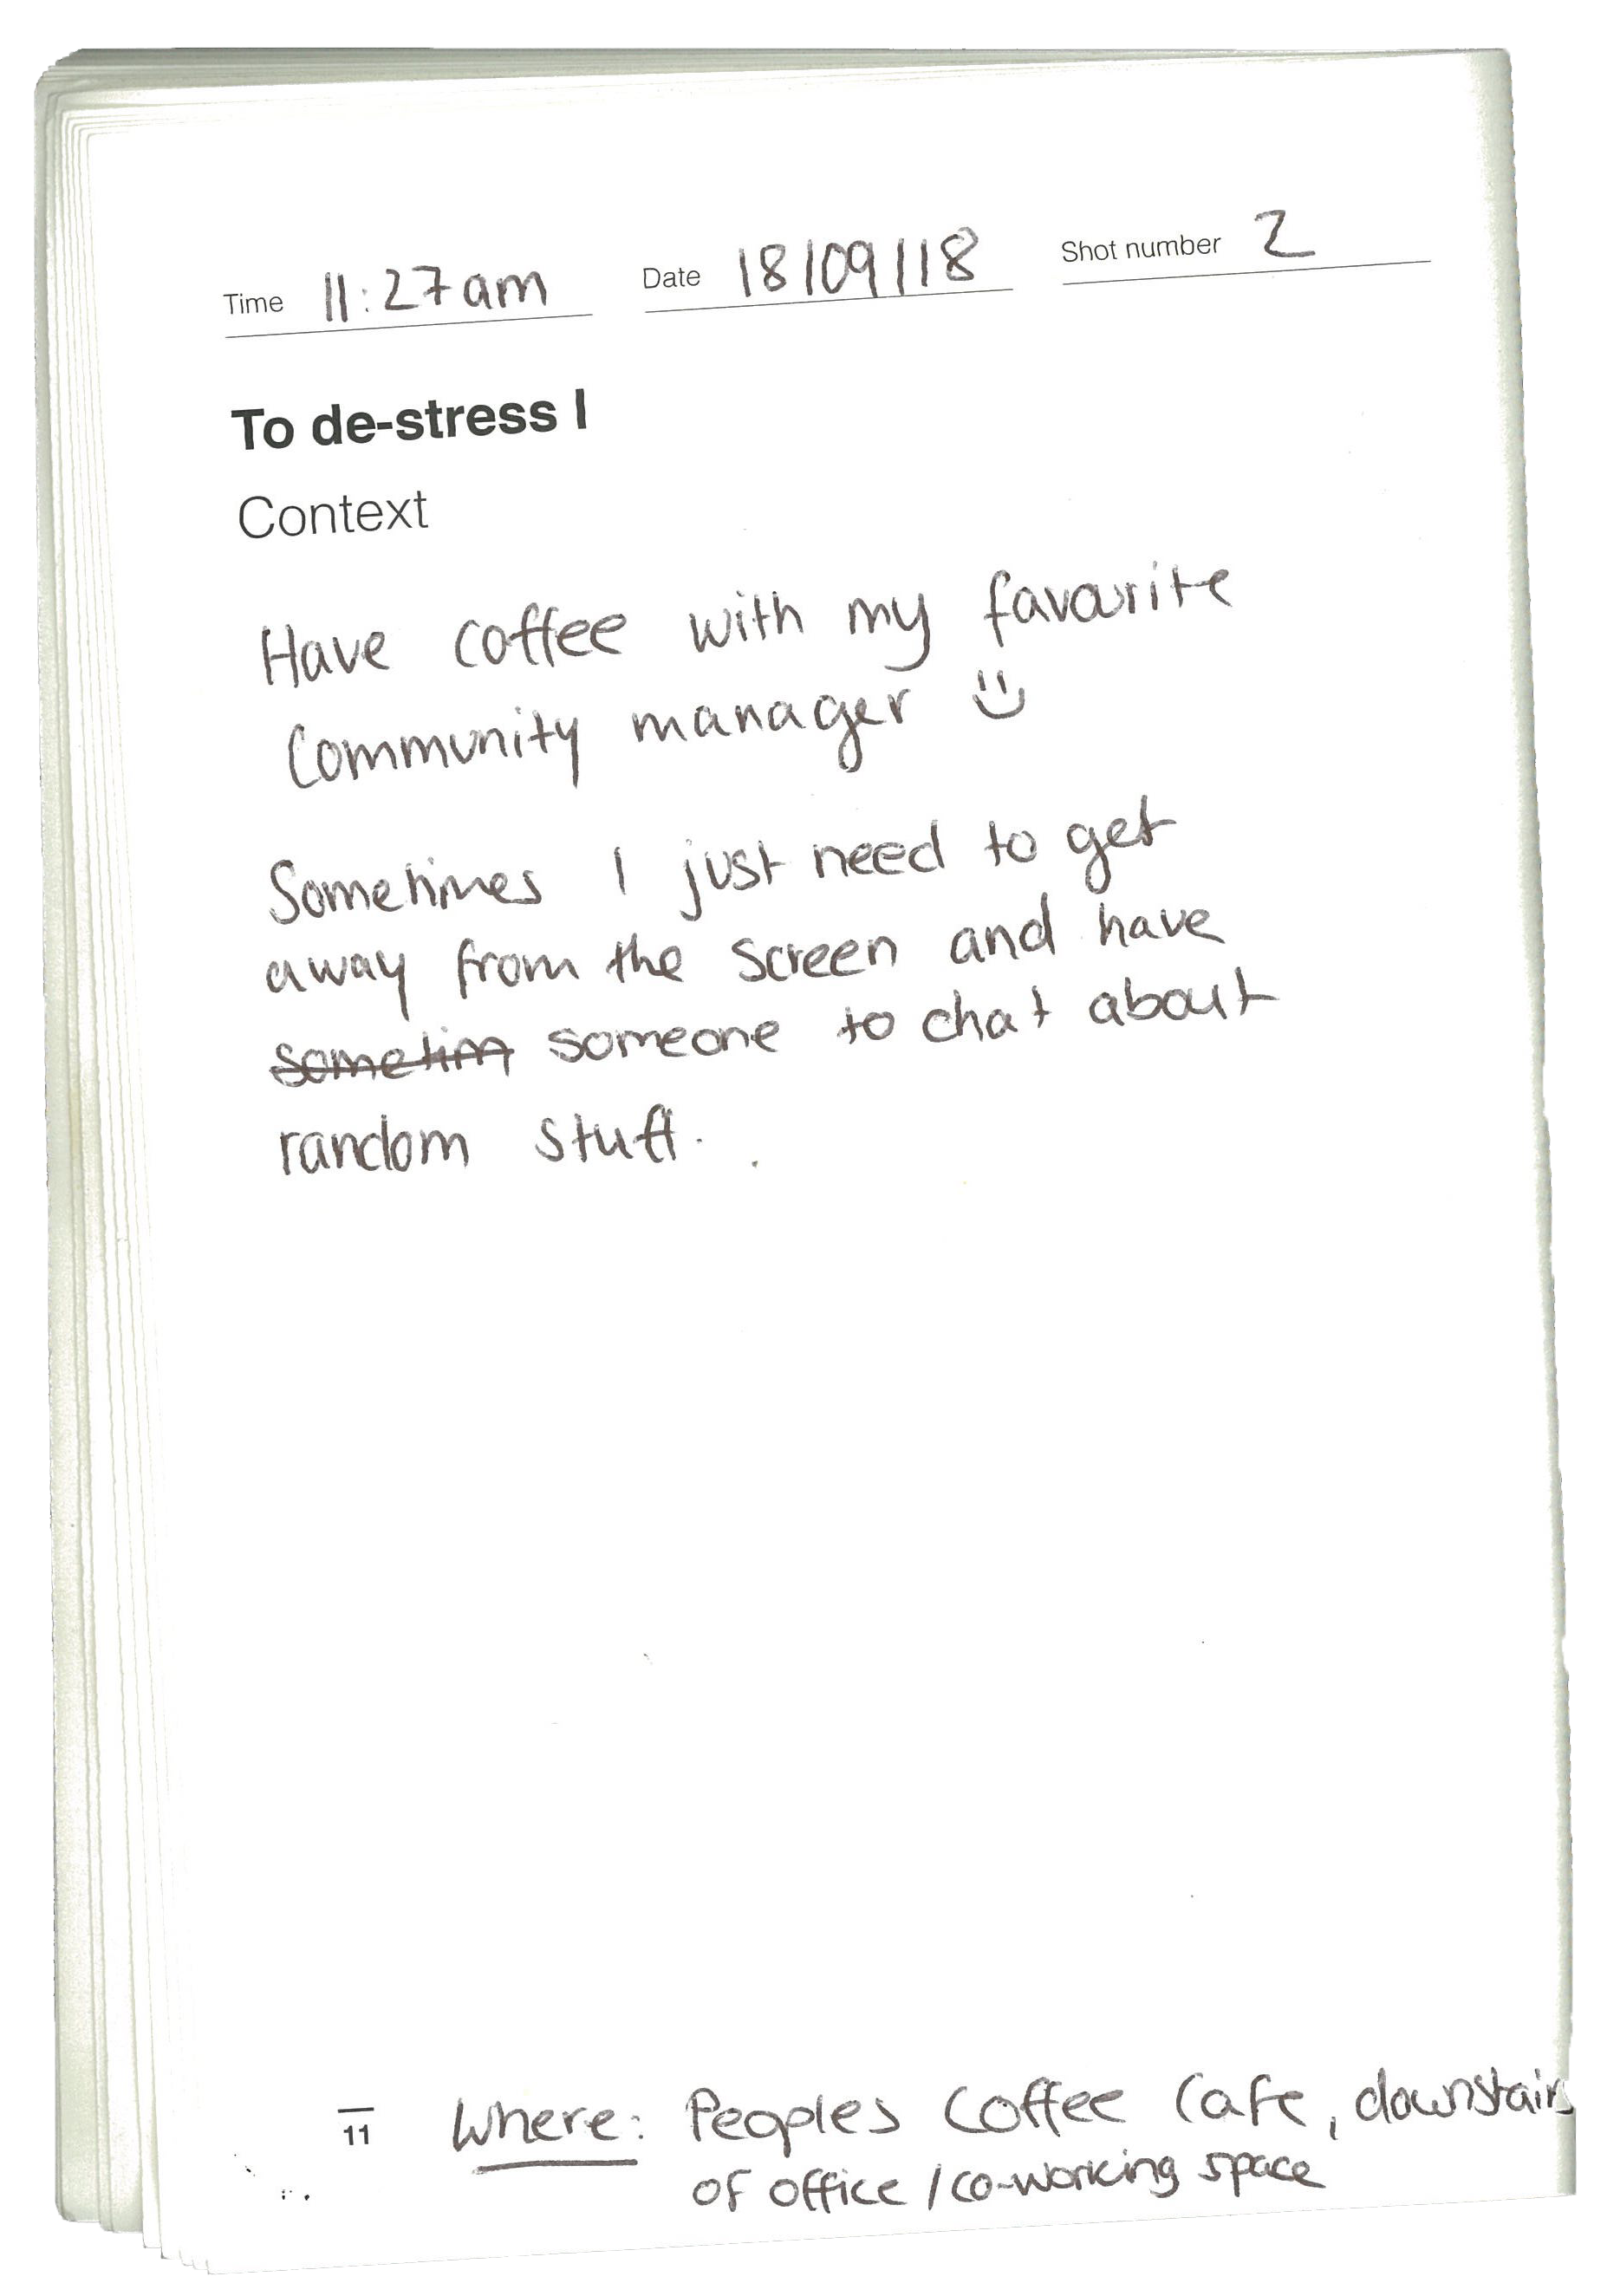 Time 11:27am Date 18/09/18 Shot number 2
To de-stress I
Context
Have coffee with my favourite
Community manager
Sometimes I just need to get
away from the screen and have
sometim someone to chat about
random stuff.
11 Where: Peoples Coffee Cafe, downstairs
of office / co-working space